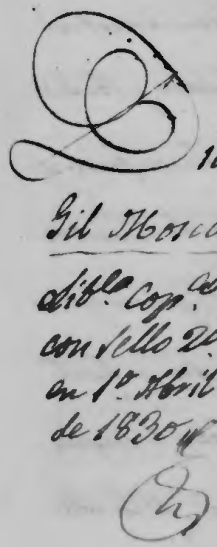 D
Gil Mosc
dib.la cop.a
con sello 2o
en 1o Abril
de 1830